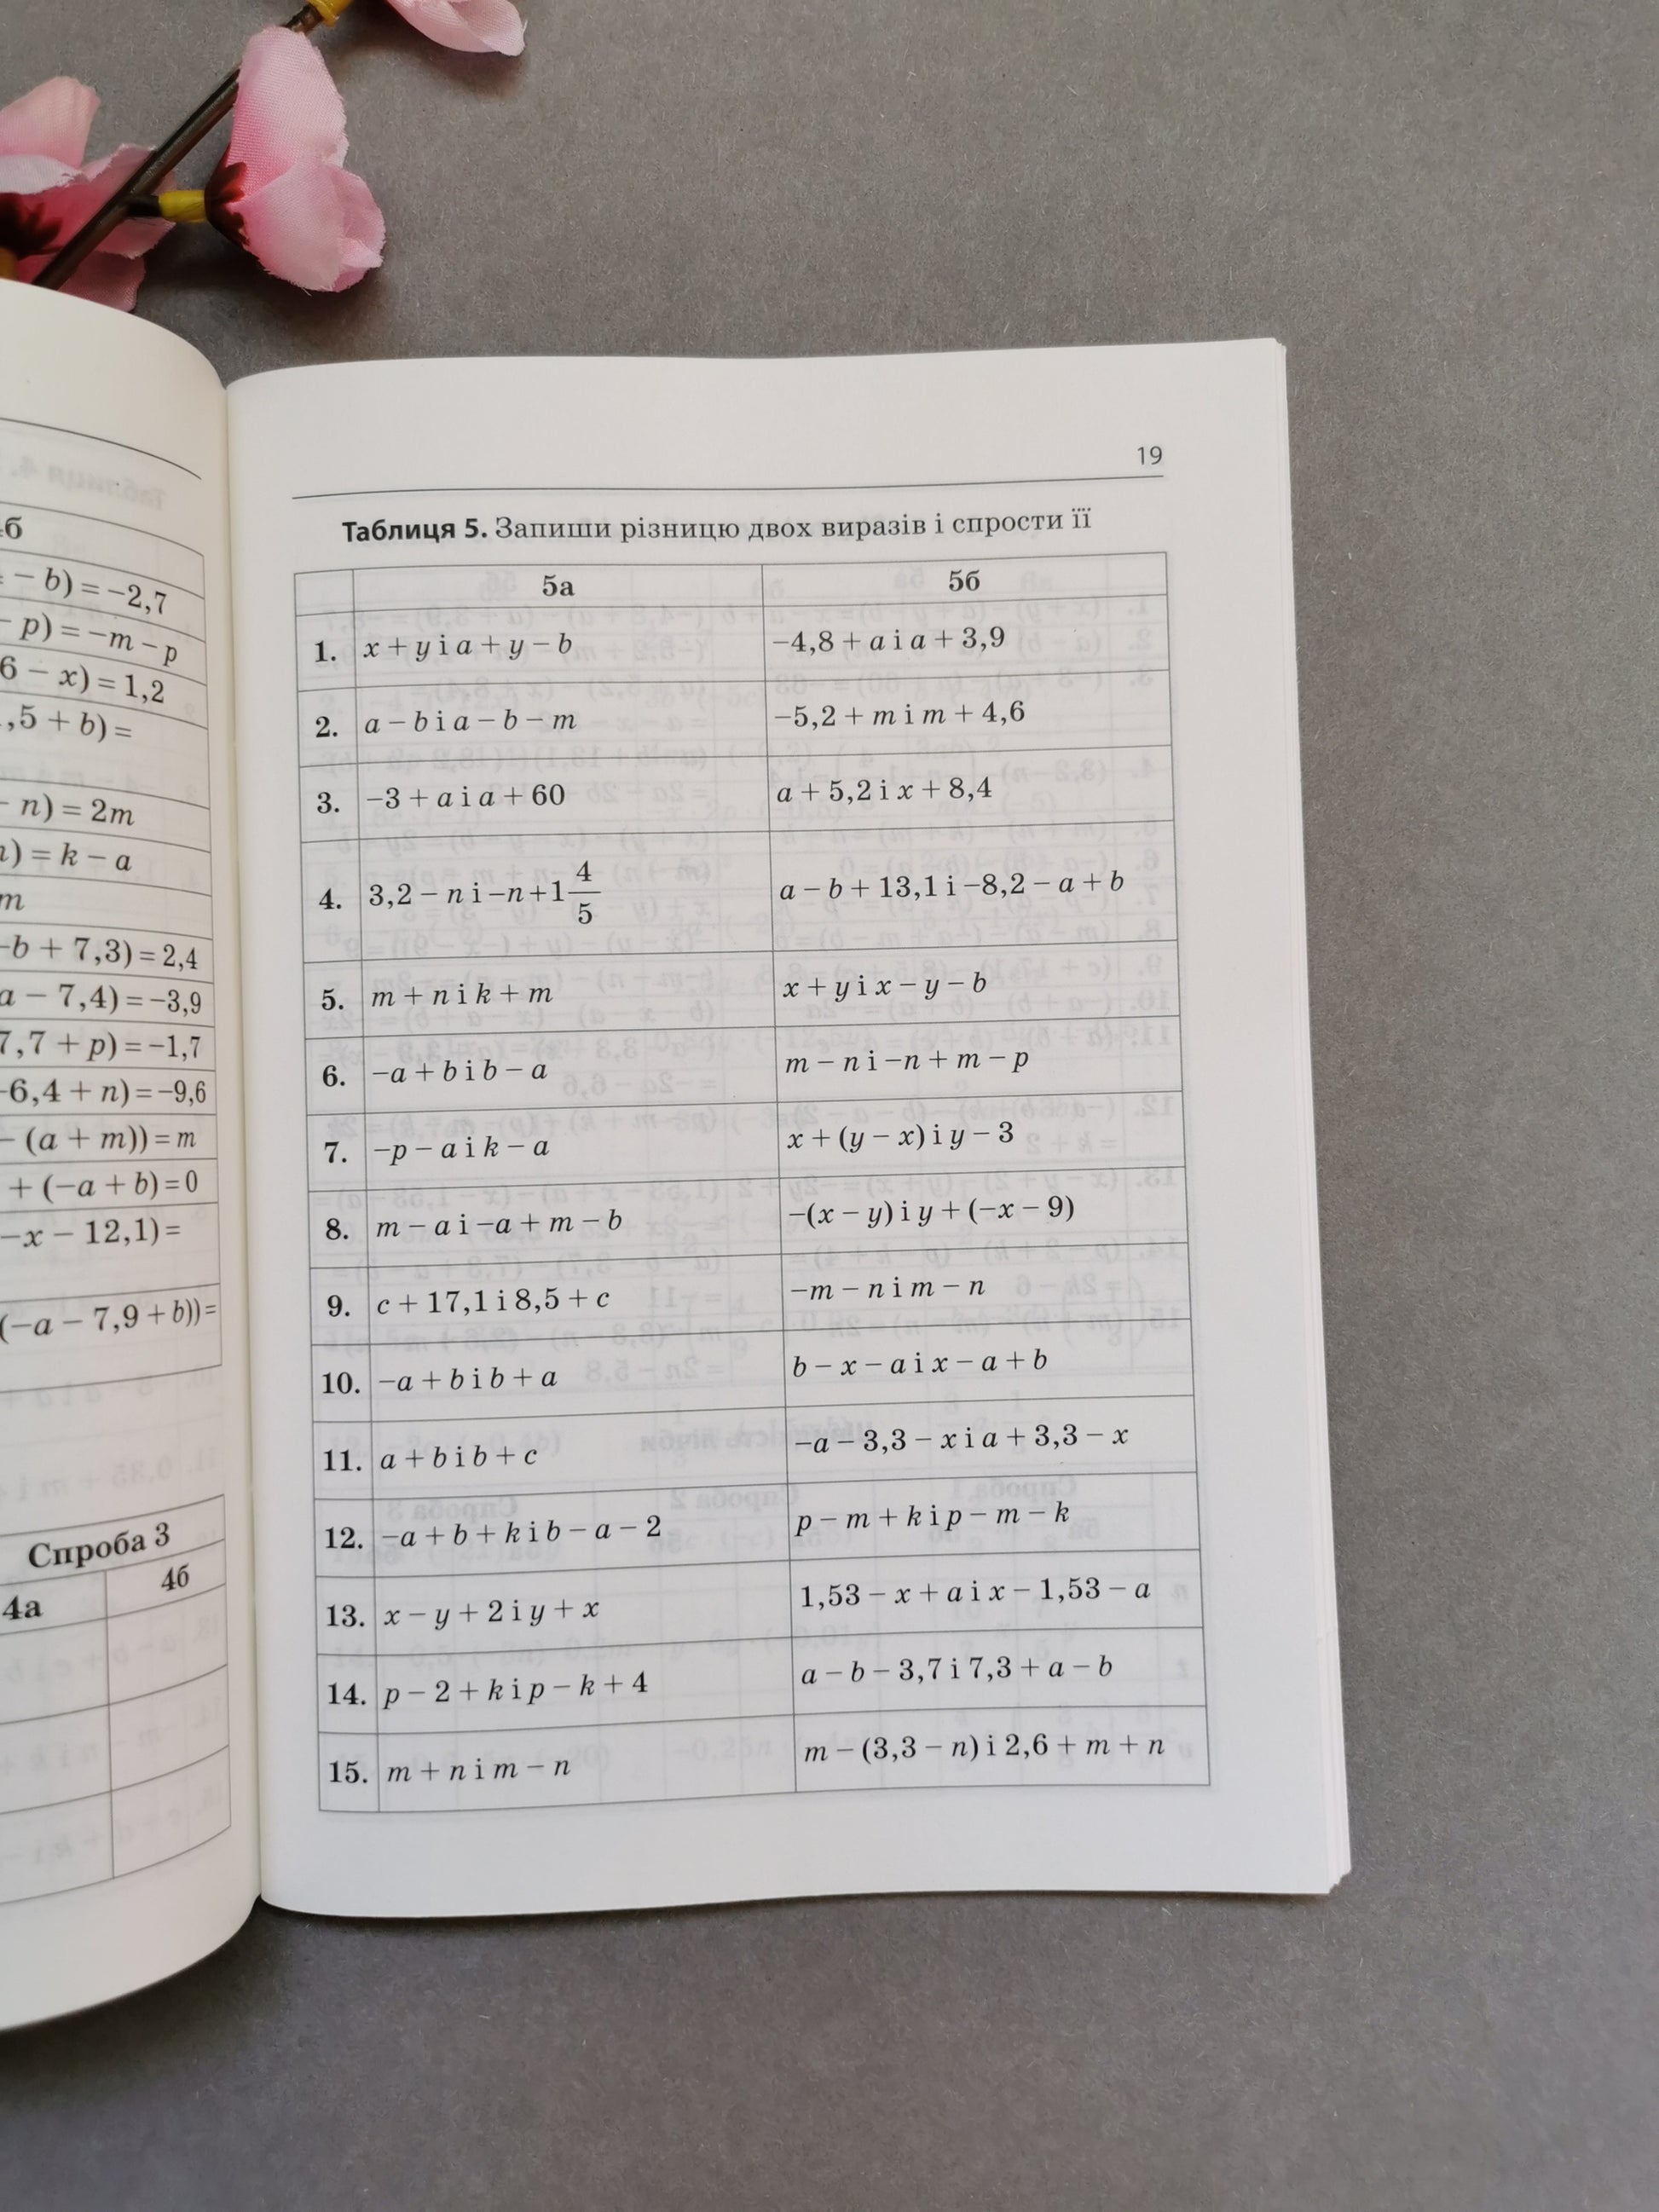 4б
− b) = −2,7
− p) = −m − p
6 − x) = 1,2
,5 + b) =
− n) = 2m
) = k − a
m
−b + 7,3) = 2,4
a − 7,4) = −3,9
7,7 + p) = −1,7
−6,4 + n) = −9,6
− (a + m)) = m
+ (−a + b) = 0
−x − 12,1) =
(−a − 7,9 + b)) =
Спроба 3
4а 4б
19
Таблиця 5. Запиши різницю двох виразів і спрости її
5а 5б
1. x + y і a + y − b −4,8 + a і a + 3,9
2. a − b і a − b − m −5,2 + m і m + 4,6
3. −3 + a і a + 60 a + 5,2 і x + 8,4
4. 3,2 − n і −n + 1 4/5 a − b + 13,1 і −8,2 − a + b
5. m + n і k + m x + y і x − y − b
6. −a + b і b − a m − n і −n + m − p
7. −p − a і k − a x + (y − x) і y − 3
8. m − a і −a + m − b −(x − y) і y + (−x − 9)
9. c + 17,1 і 8,5 + c −m − n і m − n
10. −a + b і b + a b − x − a і x − a + b
11. a + b і b + c −a − 3,3 − x і a + 3,3 − x
12. −a + b + k і b − a − 2 p − m + k і p − m − k
13. x − y + 2 і y + x 1,53 − x + a і x − 1,53 − a
14. p − 2 + k і p − k + 4 a − b − 3,7 і 7,3 + a − b
15. m + n і m − n m − (3,3 − n) і 2,6 + m + n